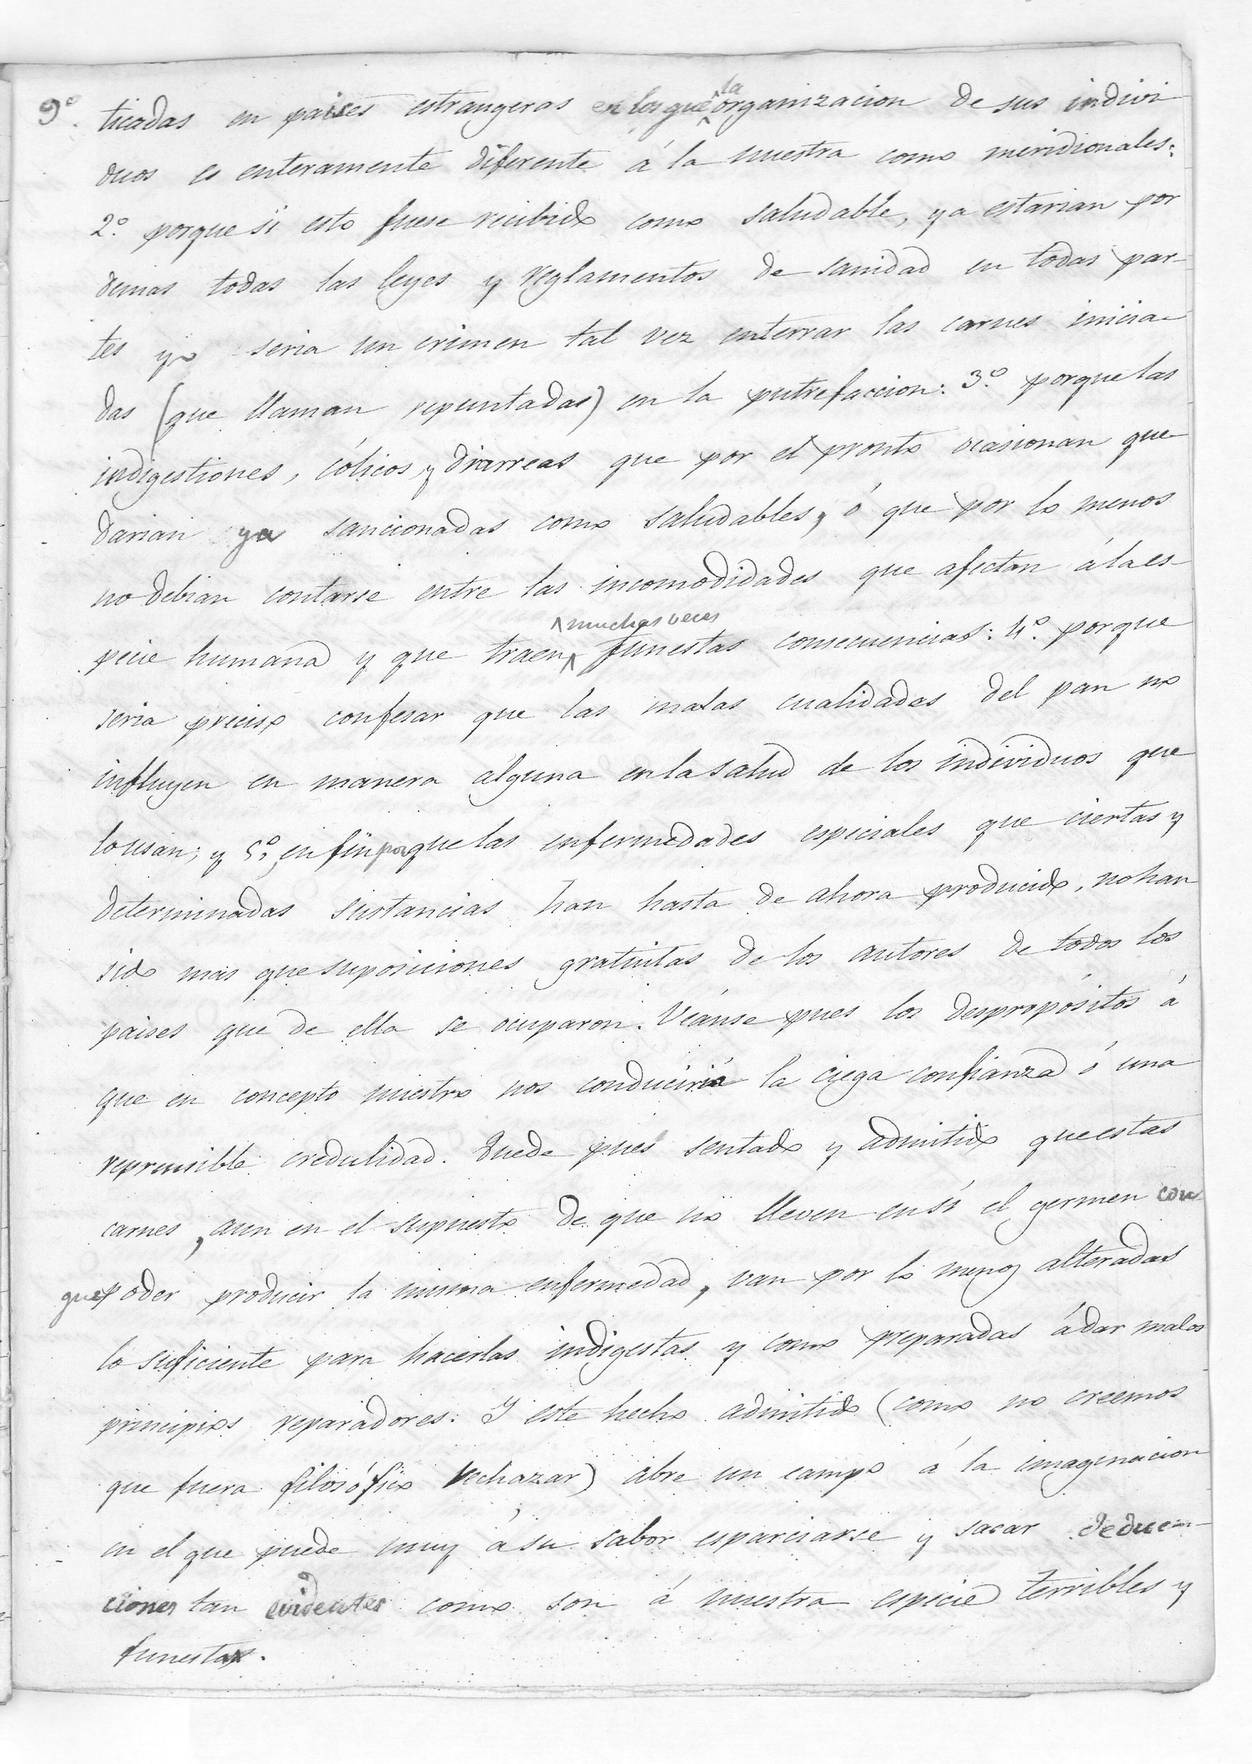 9º. ticadas en paises estrangeros en los que la organizacion de sus indivi-
duos es enteramente diferente á la nuestra como meridionales:
2º. porque si esto fuese recibido como saludable, ya estarian por
demas todas las leyes y reglamentos de sanidad en todas par-
tes y seria un crimen tal vez enterrar las carnes inicia-
das (que llaman repuntadas) en la putrefaccion: 3º. porque las
indigestiones, cólicos y diarreas que por el pronto ocasionan que
darian ya sancionadas como saludables, ó que por lo menos
no debian contarse entre las incomodidades que afectan á la es-
pecie humana y que traen muchas veces funestas consecuencias: 4º. porque
seria preciso confesar que las malas cualidades del pan no
influyen en manera alguna en la salud de los individuos que
lo usan; y 5º, en fin porque las enfermedades especiales que ciertas y
determinadas sustancias han hasta de ahora producido, no han
sido mas que suposiciones gratuitas de los autores de todos los
paises que de ella se ocuparon. Véanse pues los despropósitos á
que en concepto nuestro nos conduciria la ciega confianza ó una
reprensible credulidad. Quede pues sentado y admitido que estas
carnes, aun en el supuesto de que no lleven en sí el germen con
que poder producir la misma enfermedad, van por lo menos alteradas
lo suficiente para hacerlas indigestas y como preparadas á dar malos
principios reparadores: Y este hecho admitido (como no creemos
que fuera filosófico rechazar) abre un campo á la imaginacion
en el que puede muy á su sabor esparciarse y sacar deduc-
ciones tan evidentes como son á nuestra especie terribles y
funestas.